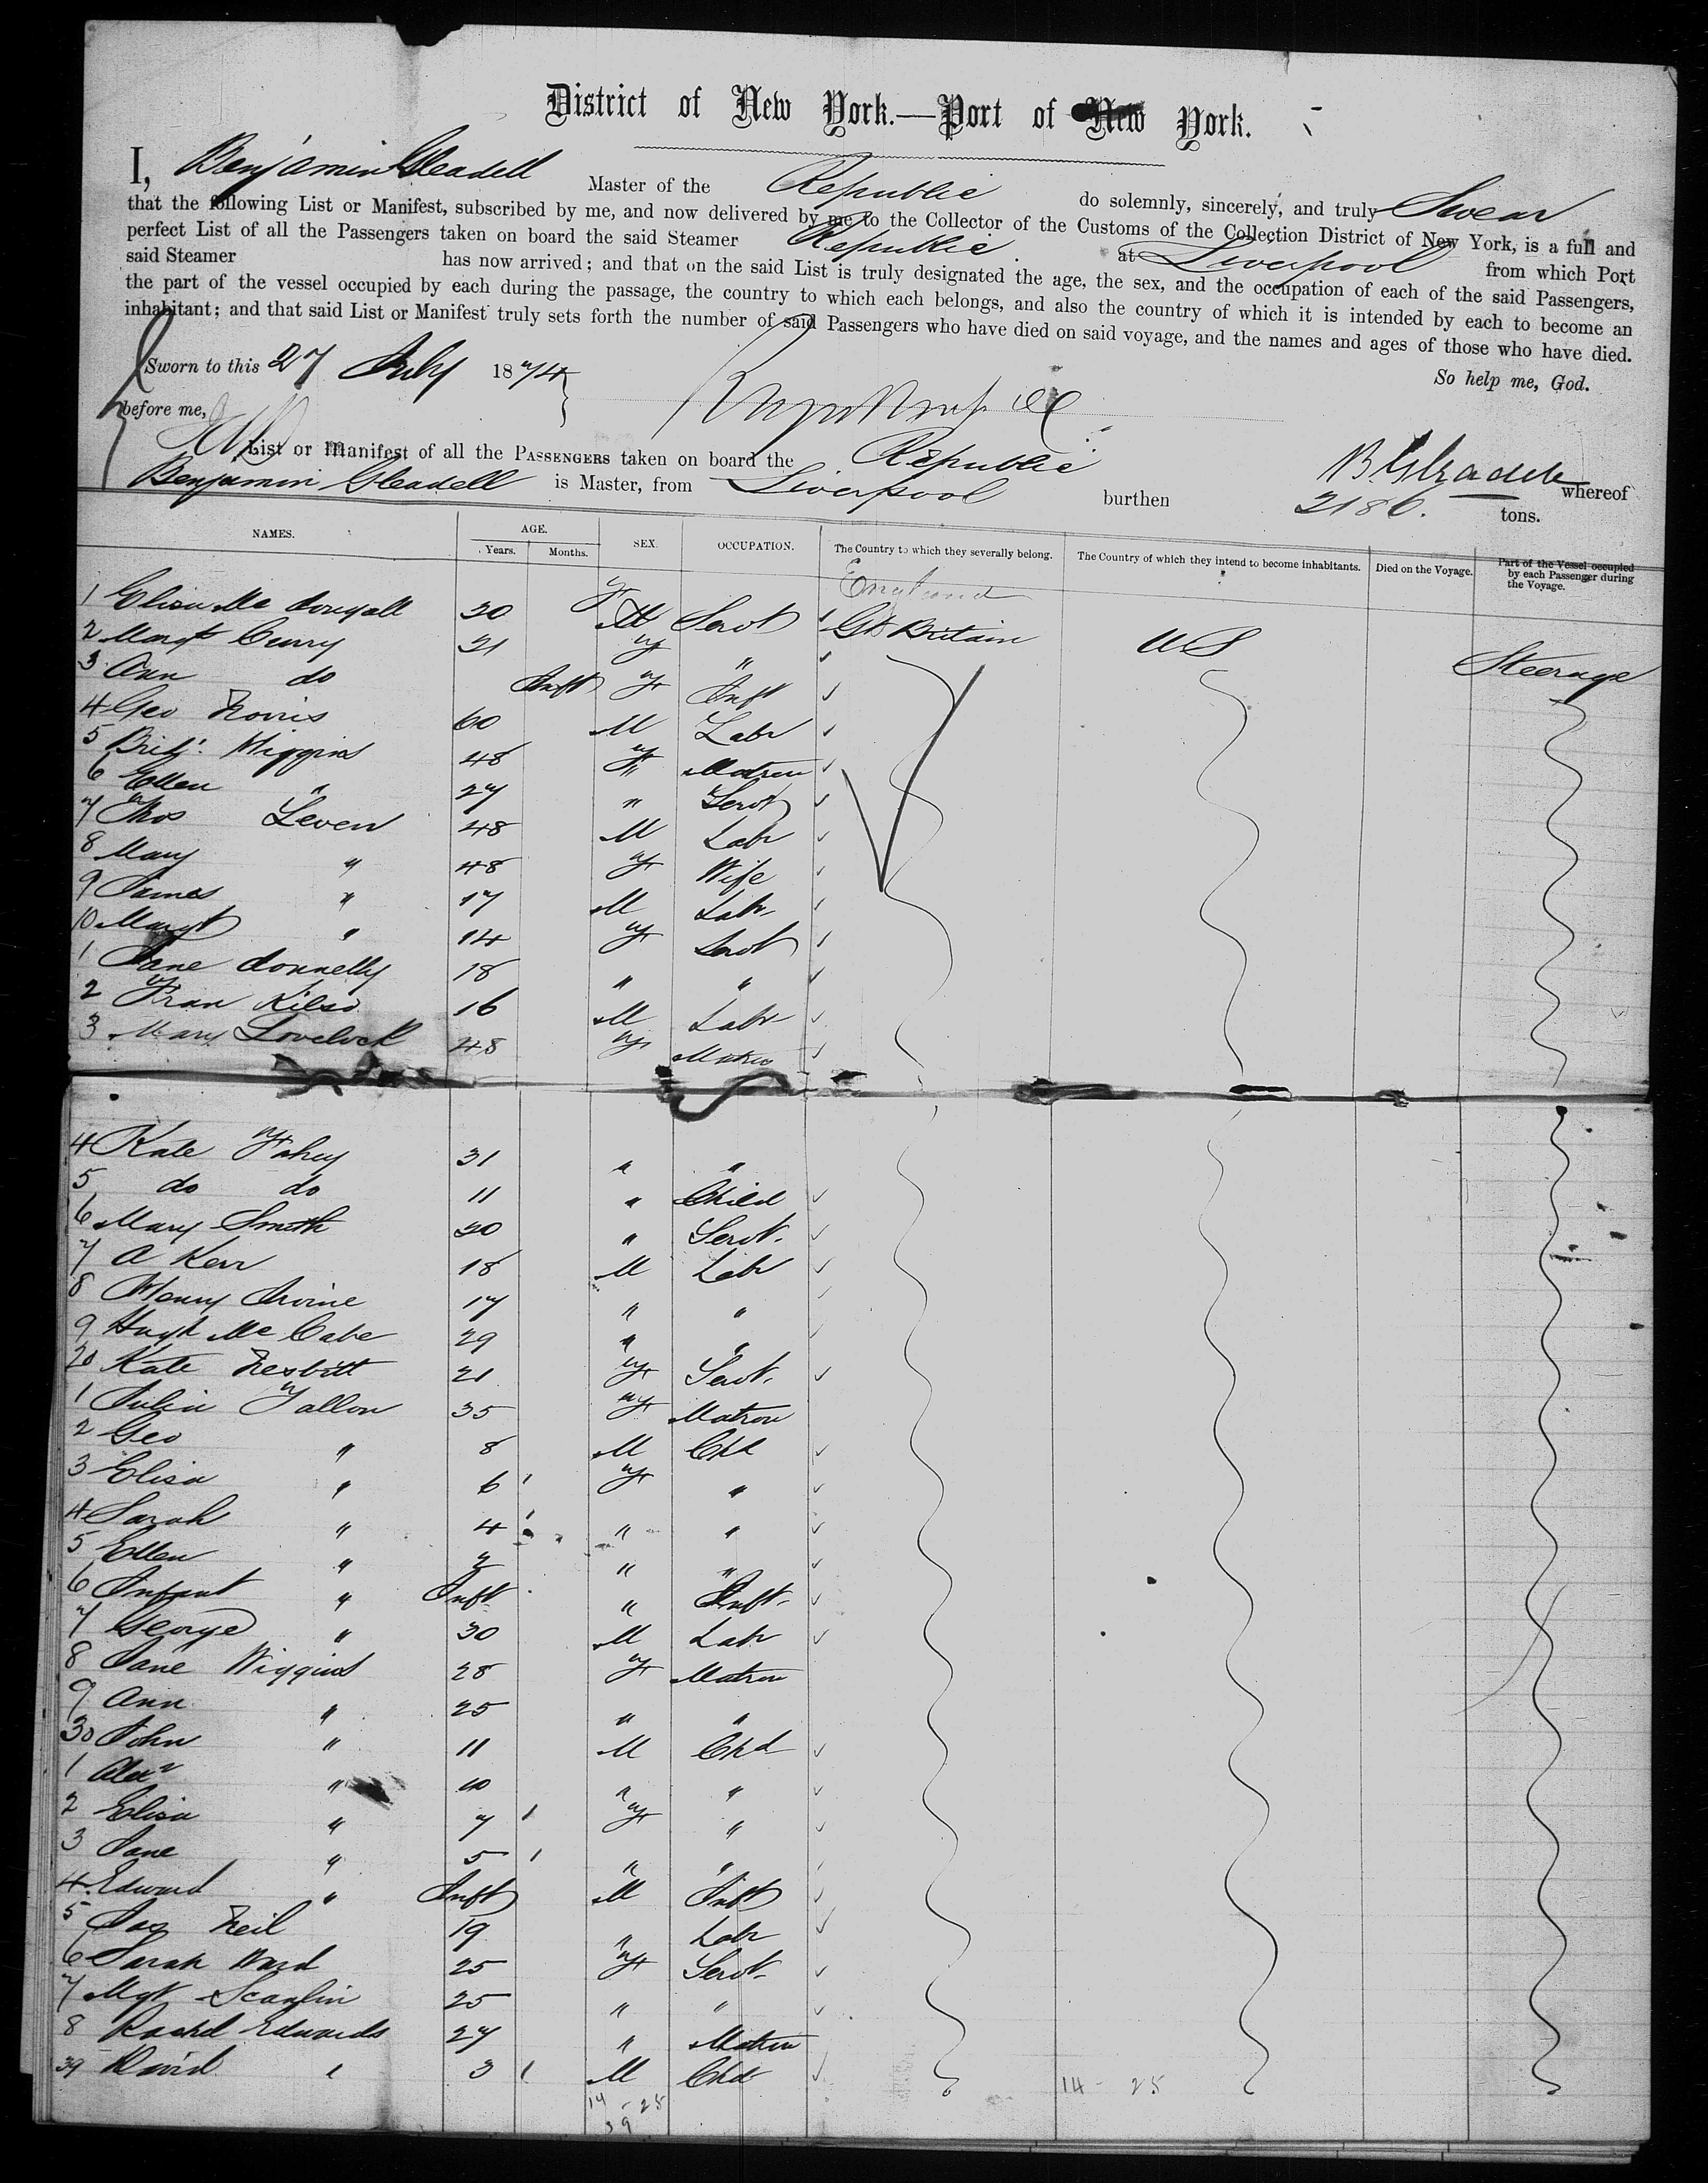 District of New York.—Port of New York.
I, Benjamin Gleadell Master of the Republic do solemnly, sincerely, and truly Swear
that the following List or Manifest, subscribed by me, and now delivered by me to the Collector of the Customs of the Collection District of New York, is a full and
perfect List of all the Passengers taken on board the said Steamer Republic at Liverpool from which Port
said Steamer has now arrived; and that on the said List is truly designated the age, the sex, and the occupation of each of the said Passengers,
the part of the vessel occupied by each during the passage, the country to which each belongs, and also the country of which it is intended by each to become an
inhabitant; and that said List or Manifest truly sets forth the number of said Passengers who have died on said voyage, and the names and ages of those who have died.
So help me, God.
Sworn to this 27 July 1874
before me,
B Gleadell
List or Manifest of all the PASSENGERS taken on board the Republic whereof
Benjamin Gleadell is Master, from Liverpool burthen 2186. tons.
NAMES. AGE. SEX. OCCUPATION. The Country to which they severally belong. The Country of which they intend to become inhabitants. Died on the Voyage. Part of the Vessel occupied by each Passenger during the Voyage.
Years. Months.
England
1 Elisa Mc dougall 20 F Servt Gt Britain U S Steerage
2 Margt Curry 21 F "
3 Ann do Inft F Inft
4 Geo Norris 60 M Labr
5 Bridt. Higgins 48 F Matron
6 Ellen " 27 " Servt
7 Thos Leven 48 M Labr
8 Mary " 48 F Wife
9 James " 17 M Labr
10 Margt " 14 F Servt
1 Jane donnelly 18 " "
2 Fran Kilso 16 M Labr
3 Mary Lovelock 48 F Matron
4 Kate Fahey 31 " "
5 do do 11 " Child
6 Mary Smith 20 " Servt.
7 A Kerr 18 M Labr
8 Henry Irvine 17 " "
9 Hugh Mc Cabe 29 " "
20 Kate Nesbitt 21 F Servt.
1 Julia Fallon 35 F Matron
2 Geo " 8 M Chd
3 Elisa " 6 F "
4 Sarah " 4 " "
5 Ellen " 2 " "
6 Infant " Inft " Inft.
7 George " 30 M Labr
8 Jane Wiggins 28 F Matron
9 Ann " 25 " "
30 John " 11 M Chd
1 Alexr " 10 " "
2 Elisa " 7 F "
3 Jane " 5 " "
4 Edward " Inft M Inft
5 Jas Neil 19 " Labr
6 Sarah Ward 25 F Servt
7 Mgt Scanlin 25 " "
8 Rachel Edwards 27 " Matron
39 David " 3 M Chd
14 - 25 14 - 25
39